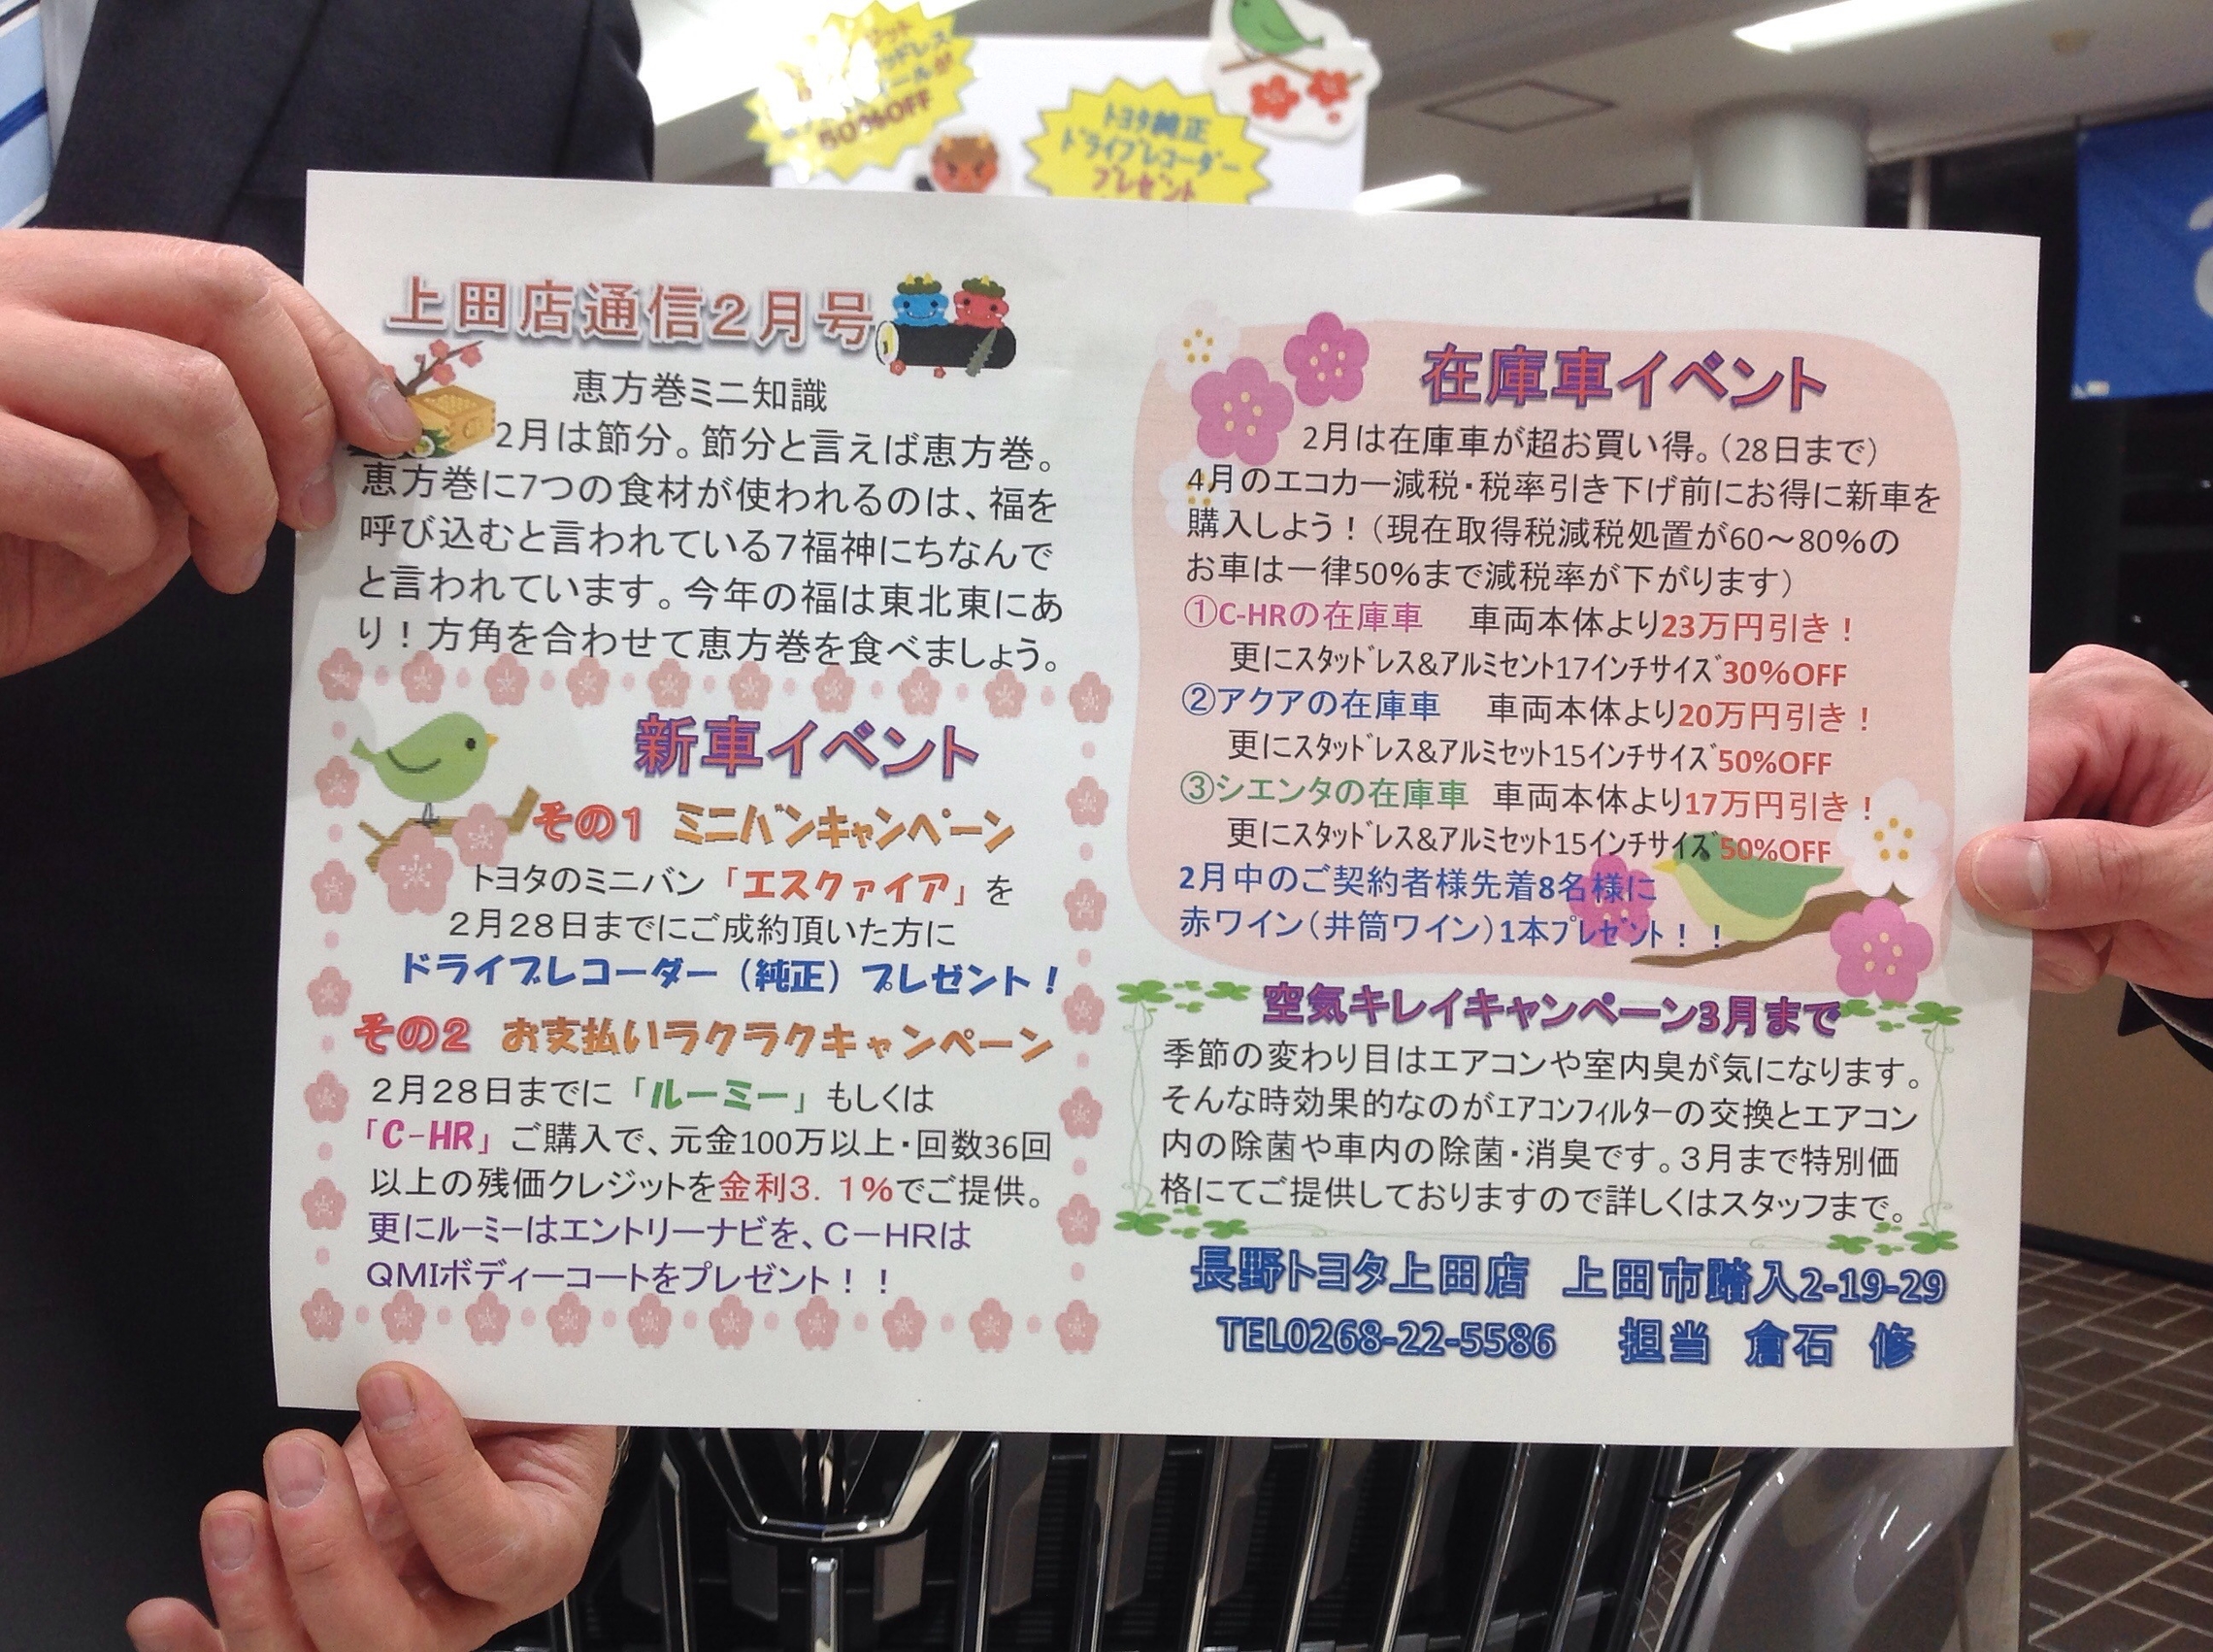 50%OFF
トヨタ純正
ドライブレコーダー
プレゼント
上田店通信2月号
恵方巻ミニ知識
2月は節分。節分と言えば恵方巻。
恵方巻に7つの食材が使われるのは、福を
呼び込むと言われている7福神にちなんで
と言われています。今年の福は東北東にあ
り！方角を合わせて恵方巻を食べましょう。
新車イベント
その1 ミニバンキャンペーン
トヨタのミニバン「エスクァイア」を
２月２８日までにご成約頂いた方に
ドライブレコーダー（純正）プレゼント！
その2 お支払いラクラクキャンペーン
２月２８日までに「ルーミー」もしくは
「C-HR」ご購入で、元金100万以上・回数36回
以上の残価クレジットを金利3．1%でご提供。
更にルーミーはエントリーナビを、C－HRは
QMIボディーコートをプレゼント！！
在庫車イベント
2月は在庫車が超お買い得。（28日まで）
4月のエコカー減税・税率引き下げ前にお得に新車を
購入しよう！（現在取得税減税処置が60～80%の
お車は一律50%まで減税率が下がります）
①C-HRの在庫車 車両本体より23万円引き！
更にスタッドレス&アルミセント17インチサイズ30%OFF
②アクアの在庫車 車両本体より20万円引き！
更にスタッドレス&アルミセット15インチサイズ50%OFF
③シエンタの在庫車 車両本体より17万円引き！
更にスタッドレス&アルミセット15インチサイズ50%OFF
2月中のご契約者様先着8名様に
赤ワイン（井筒ワイン）1本プレゼント！！
空気キレイキャンペーン3月まで
季節の変わり目はエアコンや室内臭が気になります。
そんな時効果的なのがエアコンフィルターの交換とエアコン
内の除菌や車内の除菌・消臭です。3月まで特別価
格にてご提供しておりますので詳しくはスタッフまで。
長野トヨタ上田店 上田市踏入2-19-29
TEL0268-22-5586 担当 倉石 修